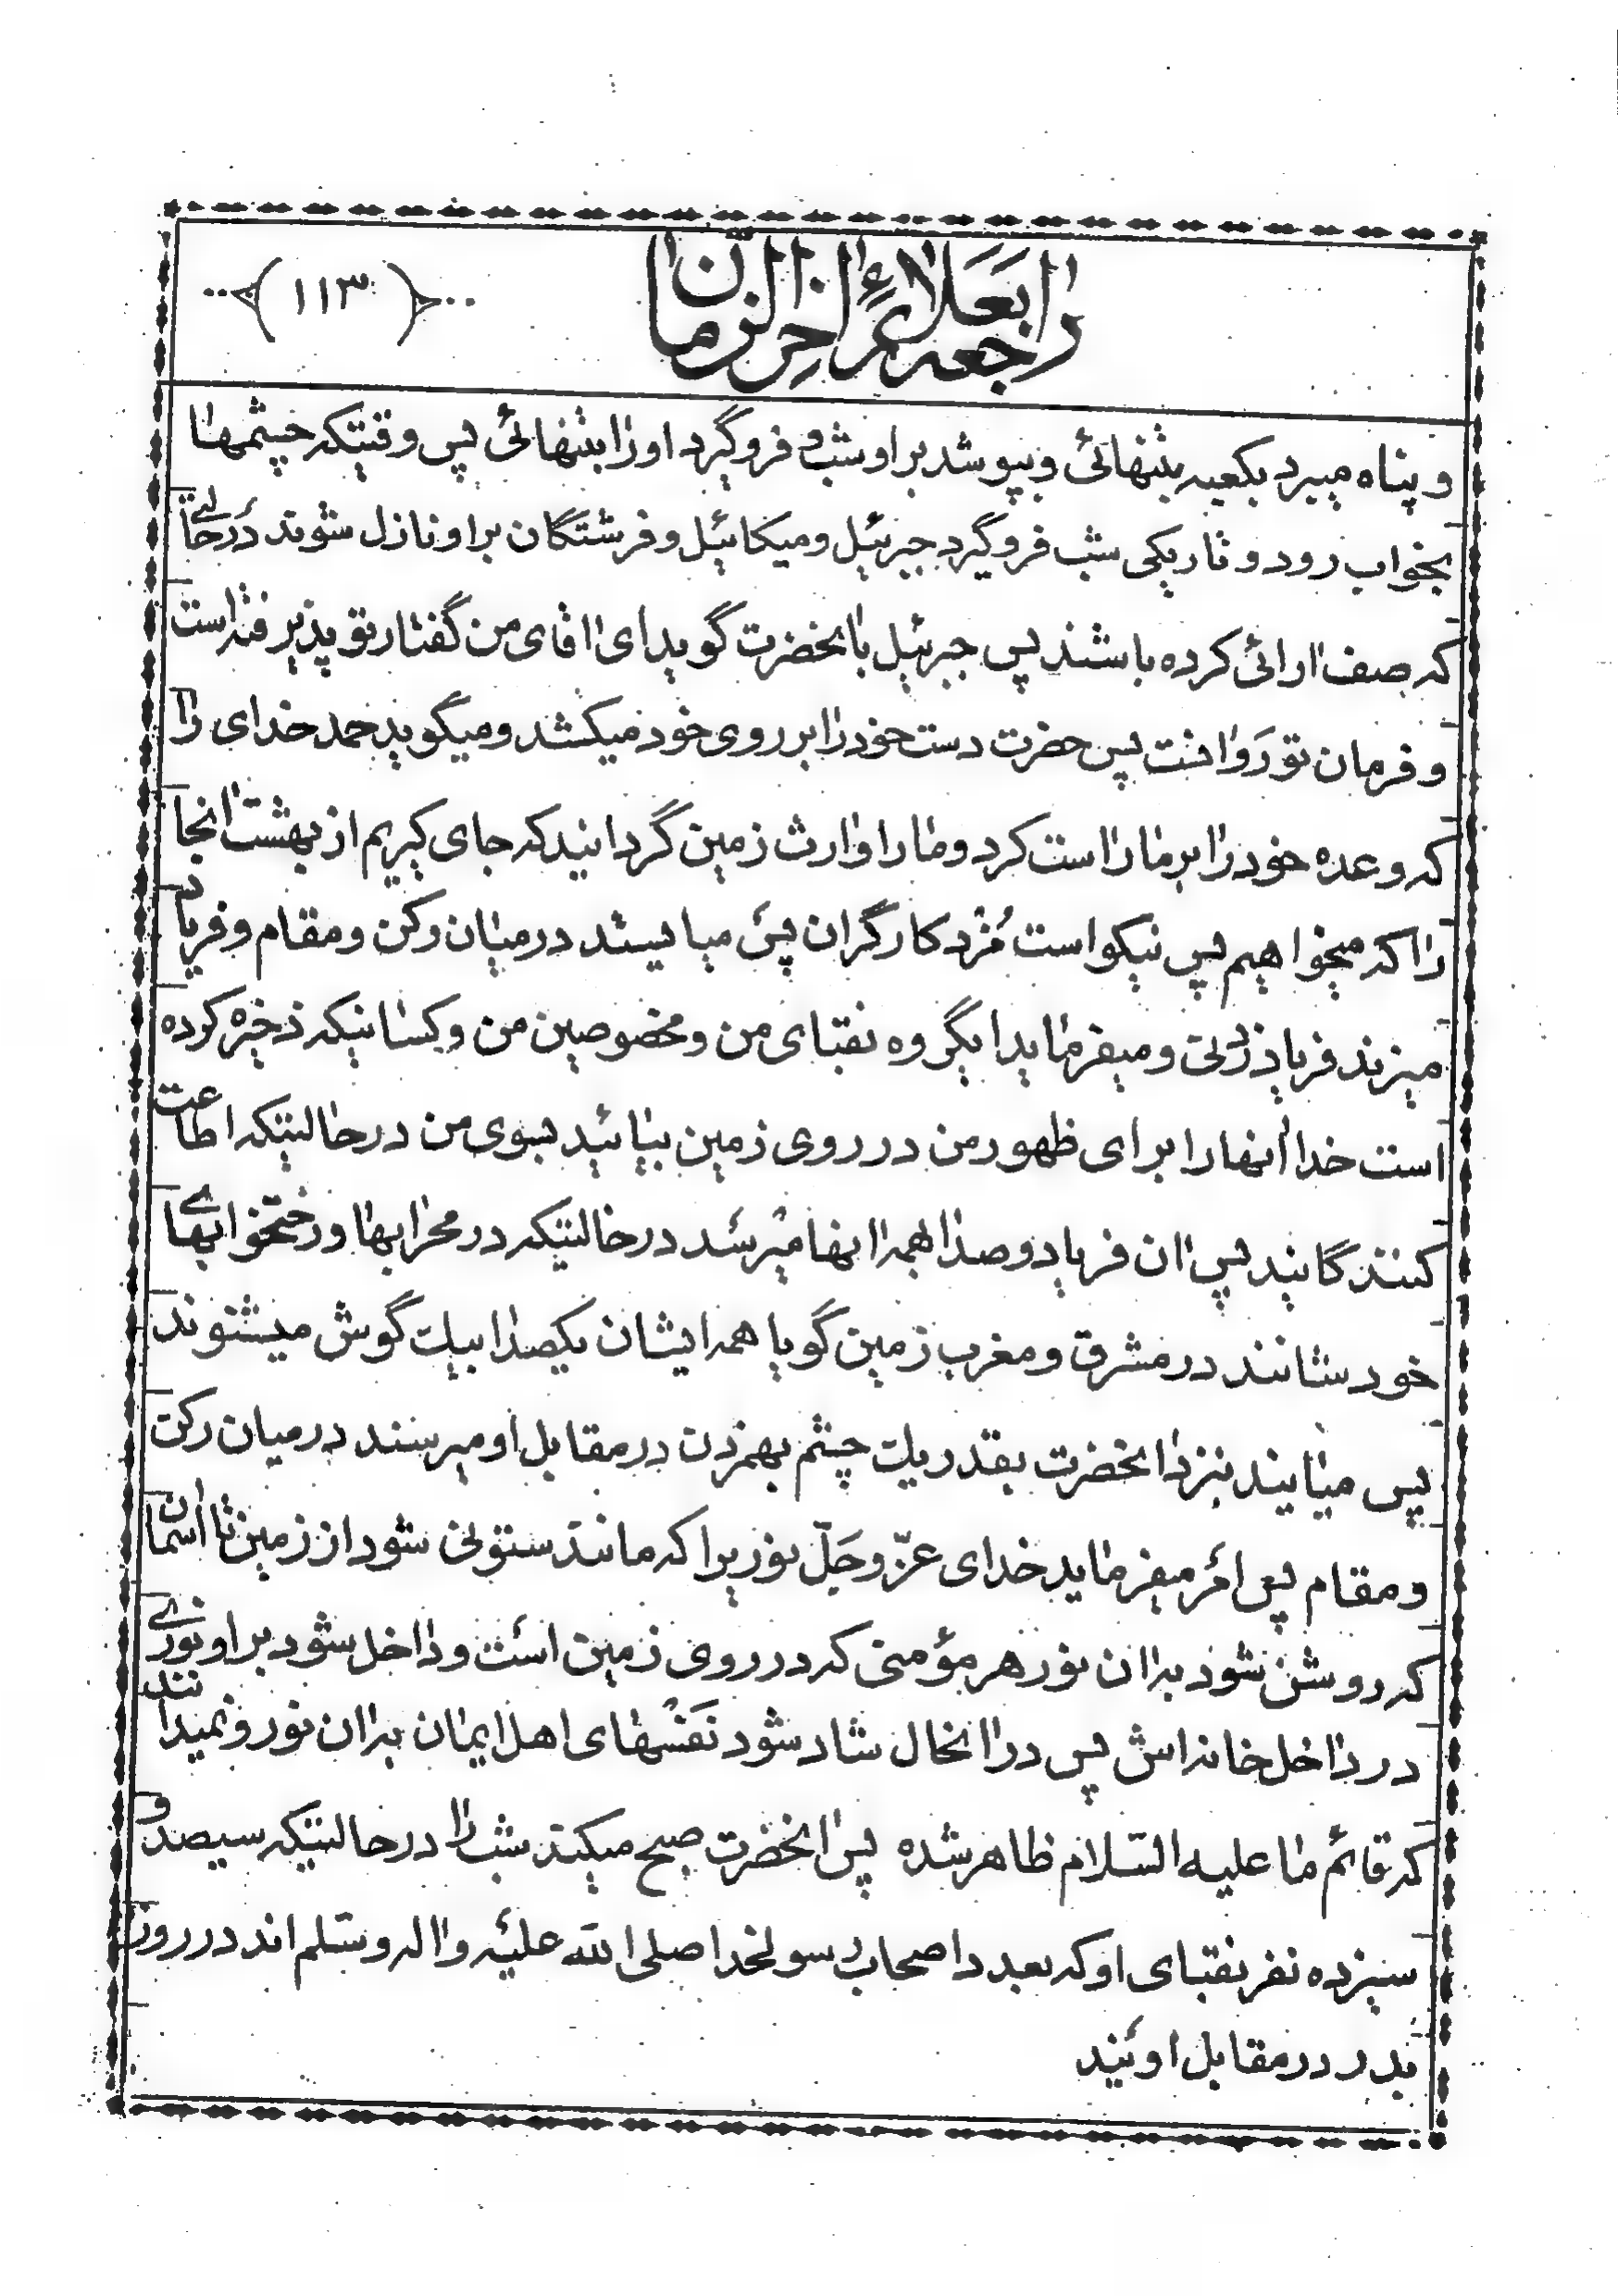 راجعه بعلائم آخر الزمان
(۱۱۳)
و پناه میبرد بکعبه بتنهائی و بپوشد بر او شب و فروگیرد او را بتنهائی پس وقتیکه چشمها
بخواب رود و تاریکی شب فروگیرد جبرئیل و میکائیل و فرشتگان بر او نازل شوند در حالتی
که صف ارائی کرده باشند پس جبرئیل بانحضرت گوید ای اقای من گفتار تو پذیرفته است
و فرمان تو رَوا است پس حضرت دست خود را بر روی خود میکشد و میگوید حمد خدای را
که وعده خود را بر ما راست کرد و ما را وارث زمین گردانید که جای گیریم از بهشت انجا
را که میخواهیم پس نیکو است مُزد کارگران پس میایستد در میان رکن و مقام و فریاد
میزند فریاد زدنی و میفرماید ایگروه نقبای من و مخصوصین من و کسانیکه ذخیره کرده
است خدا آنها را برای ظهور من در روی زمین بیائید بسوی من در حالتیکه اطاعت
کنندگانید پس ان فریاد و صدا بهمه انها میرسد در حالتیکه در محرابها و رختخوابهای
خودشانند در مشرق و مغرب زمین گویا همه ایشان یکصدا بیک گوش میشنوند
پس میایند بنزد انحضرت بقدر یک چشم بهمزدن در مقابل او میرسند در میان رکن
و مقام پس امر میفرماید خدای عزّ و جَلّ نوریرا که مانند ستونی شود از زمین تا اسمان
که روشن شود به ان نور هر مؤمنی که در روی زمین است و داخل شود بر او نوری
در داخل خانه اش پس در انحال شاد شود نَفْسهای اهل ایمان به ان نور و نمیدانند
که قائم ما علیه السّلام ظاهر شده پس انحضرت صبح میکند شب را در حالتیکه سیصد و
سیزده نفر نقبای او که بعدد اصحاب رسولخدا صلی الله علیه و اله و سلّم اند در روز
بدر در مقابل اویند